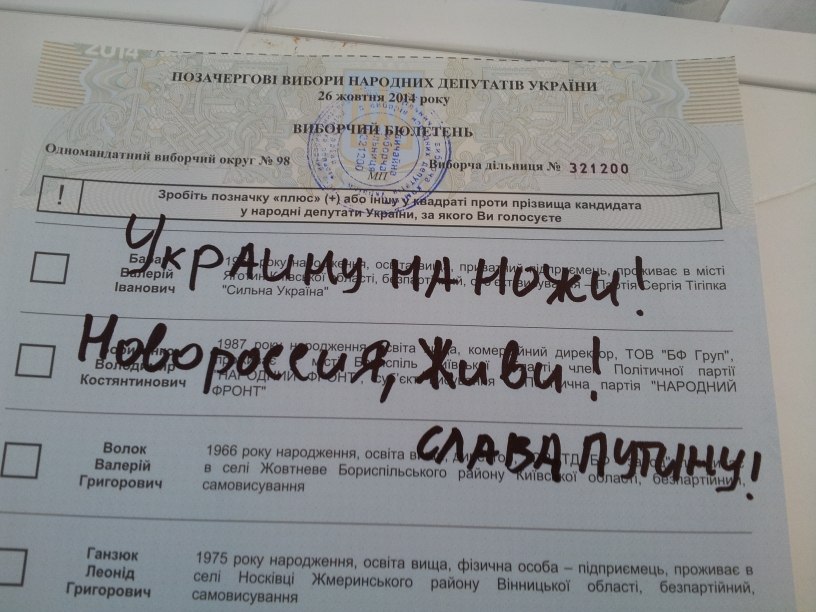 2014
ПОЗАЧЕРГОВІ ВИБОРИ НАРОДНИХ ДЕПУТАТІВ УКРАЇНИ
26 жовтня 2014 року
ВИБОРЧИЙ БЮЛЕТЕНЬ
Одномандатний виборчий округ № 98
Виборча дільниця № 321200
МП
! Зробіть позначку «плюс» (+) або іншу у квадраті проти прізвища кандидата
у народні депутати України, за якого Ви голосуєте
УКРАИНУ НА НОЖИ!
Валерій
Іванович
року народження, освіта вища, приватний підприємець, проживає в місті
області, безпартійний, партія Сергія Тігіпка
"Сильна Україна"
НОВОРОССИЯ, ЖИВИ!
Володимир
Костянтинович
1987 року народження, освіта вища, комерційний директор, ТОВ "БФ Груп",
місті Бориспіль Київської області, член Політичної партії
"НАРОДНИЙ ФРОНТ", партія "НАРОДНИЙ
ФРОНТ"
СЛАВА ПУТИНУ!
Волок
Валерій
Григорович
1966 року народження, освіта
в селі Жовтневе Бориспільського району Київської області, безпартійний,
самовисування
Ганзюк
Леонід
Григорович
1975 року народження, освіта вища, фізична особа – підприємець, проживає в
селі Носківці Жмеринського району Вінницької області, безпартійний,
самовисування